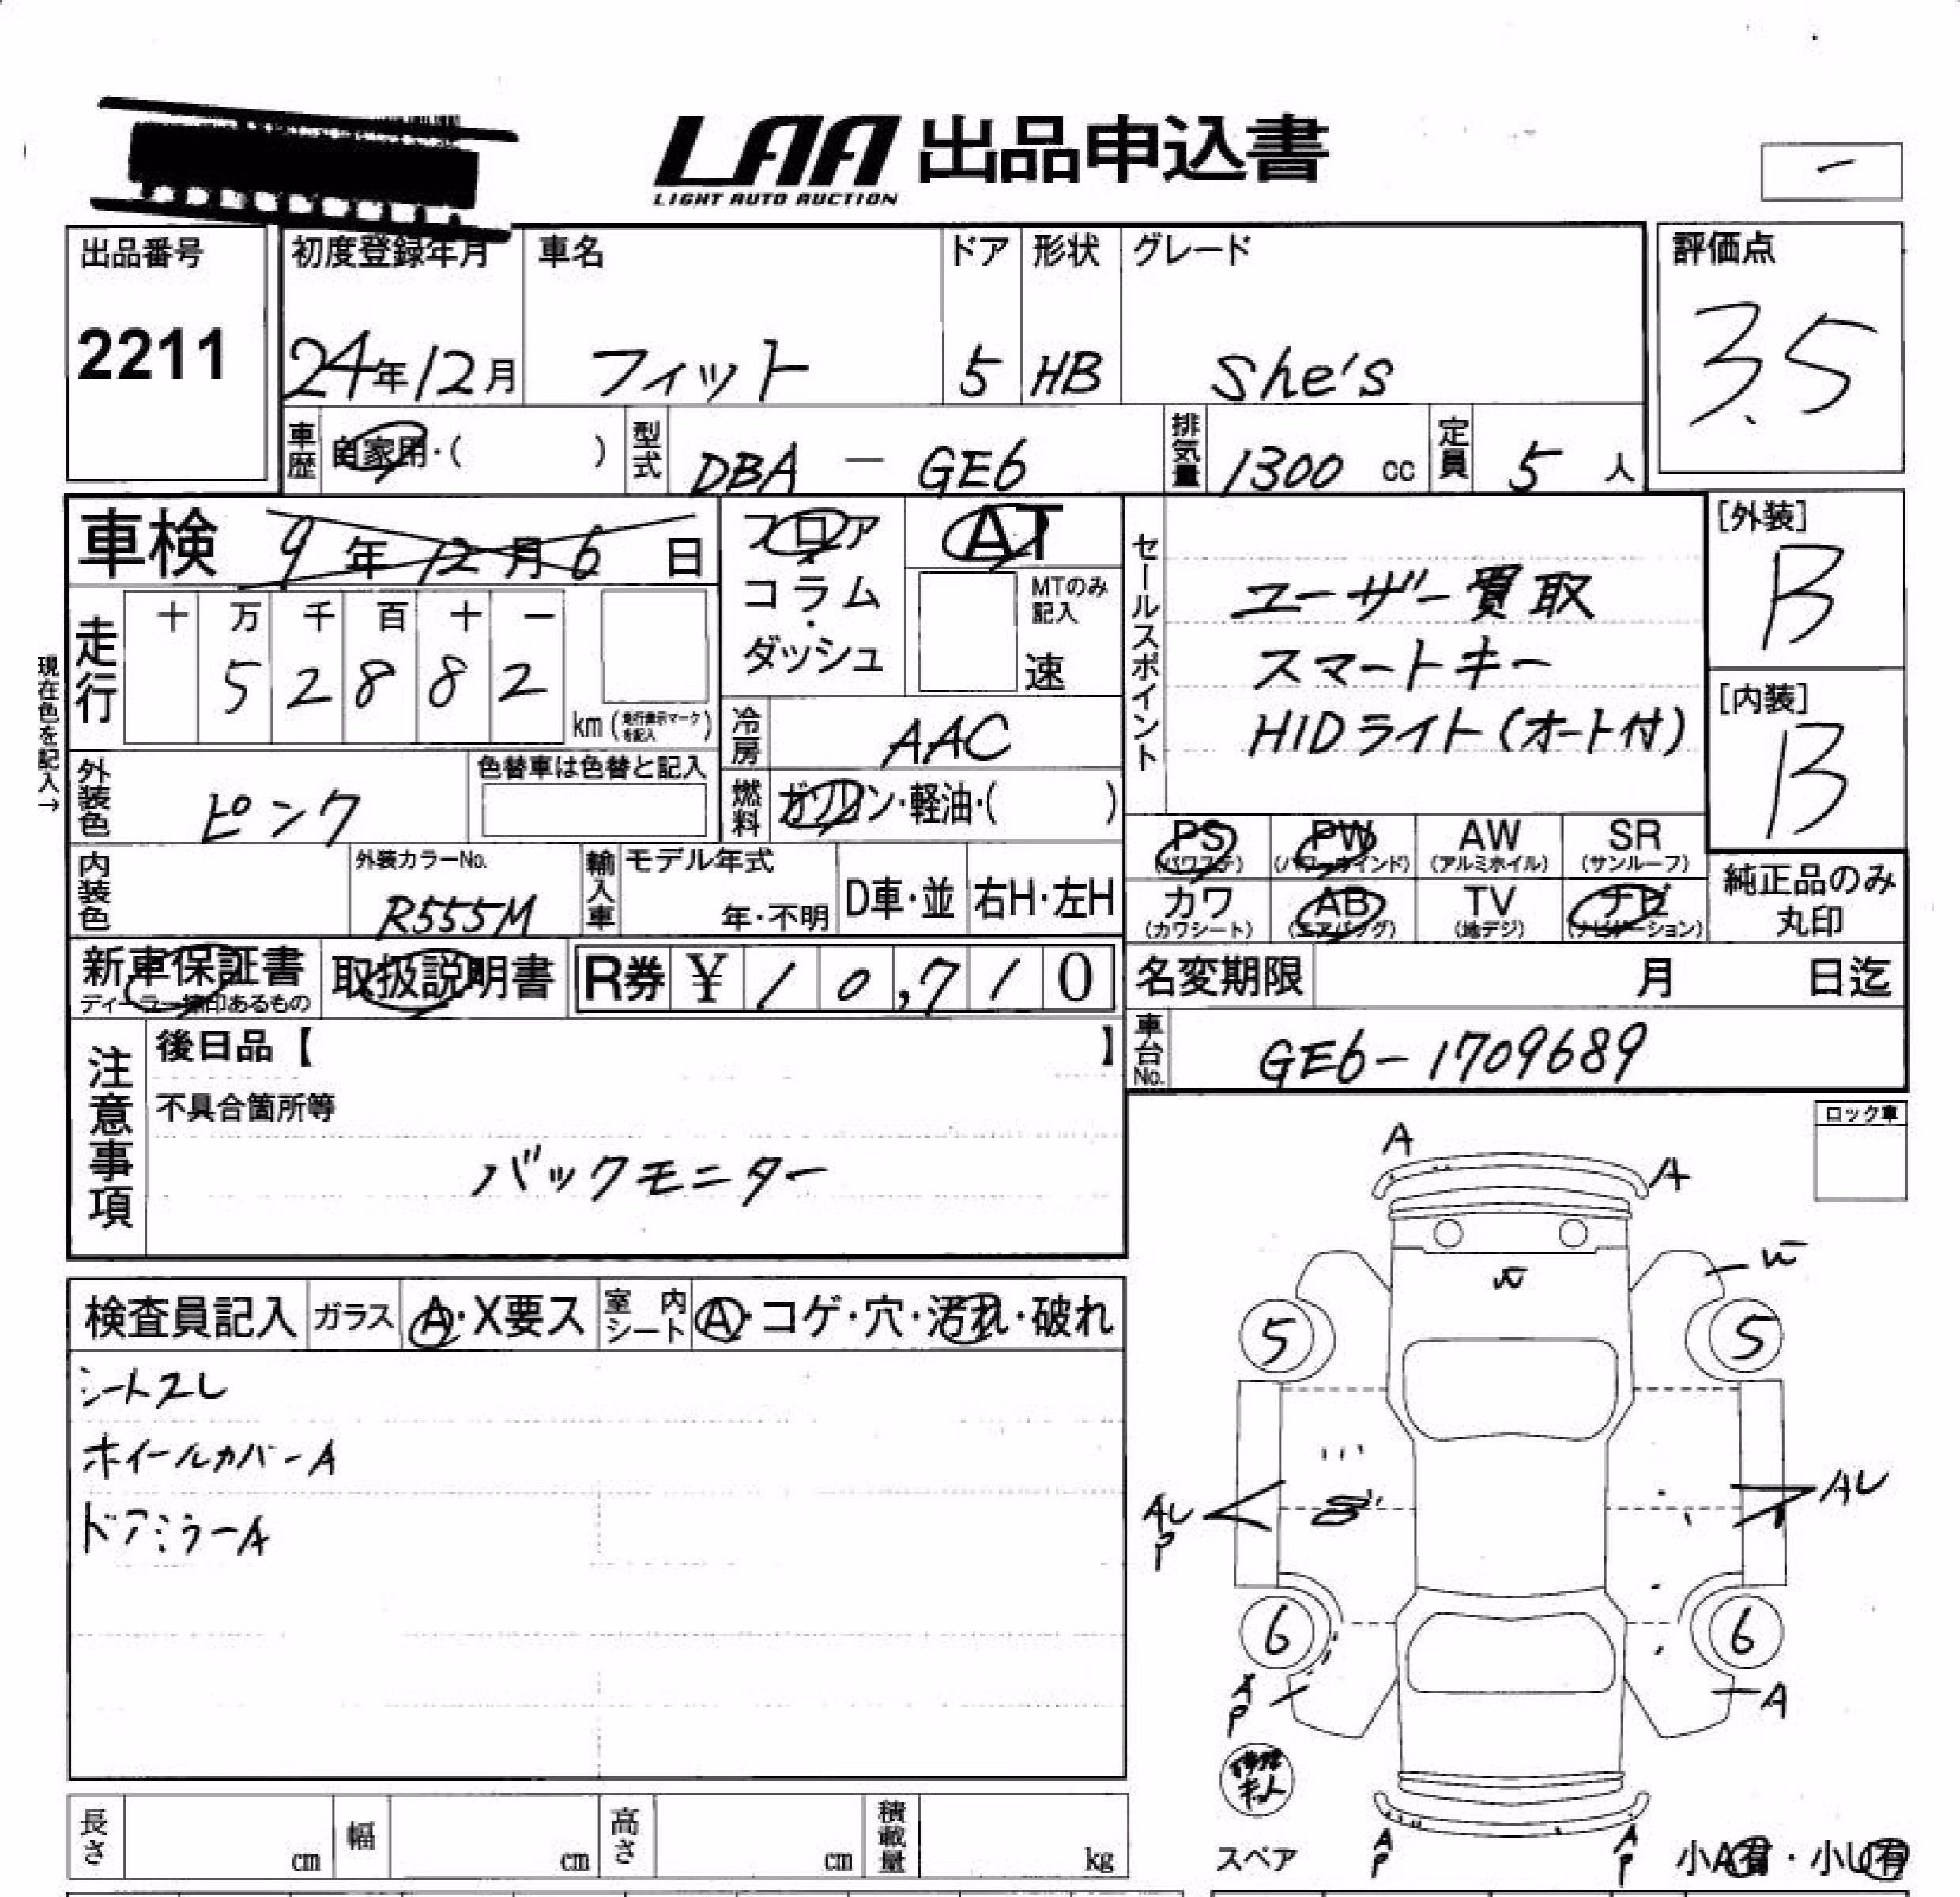 LAA 出品申込書
LIGHT AUTO AUCTION
出品番号
2211
初度登録年月
24年12月
車名
フィット
ドア
5
形状
HB
グレード
She's
評価点
3.5
車歴
自家用・( )
型式
DBA - GE6
排気量
1300 cc
定員
5 人
車検 9年12月6日
走行
十 万 千 百 十 一
5 2 8 8 2
km (走行表示マークを記入)
現在色を記入→
外装色
ピンク
色替車は色替と記入
内装色
外装カラーNo.
R555M
輸入車
モデル年式
年・不明
D車・並
右H・左H
フロア
コラム
・
ダッシュ
AT
MTのみ
記入
速
冷房
AAC
燃料
ガソリン・軽油・( )
セールスポイント
ユーザー買取
スマートキー
HIDライト(オート付)
[外装]
B
[内装]
B
PS
(パワステ)
PW
(パワーウインド)
AW
(アルミホイル)
SR
(サンルーフ)
カワ
(カワシート)
AB
(エアバッグ)
TV
(地デジ)
ナビ
(ナビゲーション)
純正品のみ
丸印
新車保証書
ディーラー捺印あるもの
取扱説明書
R券 ¥ 10,710
名変期限 月 日迄
車台No.
GE6-1709689
注意事項
後日品【 】
不具合箇所等
バックモニター
ロック車
検査員記入
ガラス
A・X要ス
室内シート
A・コゲ・穴・汚れ・破れ
シートスレ
ホイールカバーA
ドアミラーA
A
A
5
5
AU
P
AU
6
6
A
P
A
スペア
A
P
A
P
小A有・小U有
長さ cm
幅 cm
高さ cm
積載量 kg